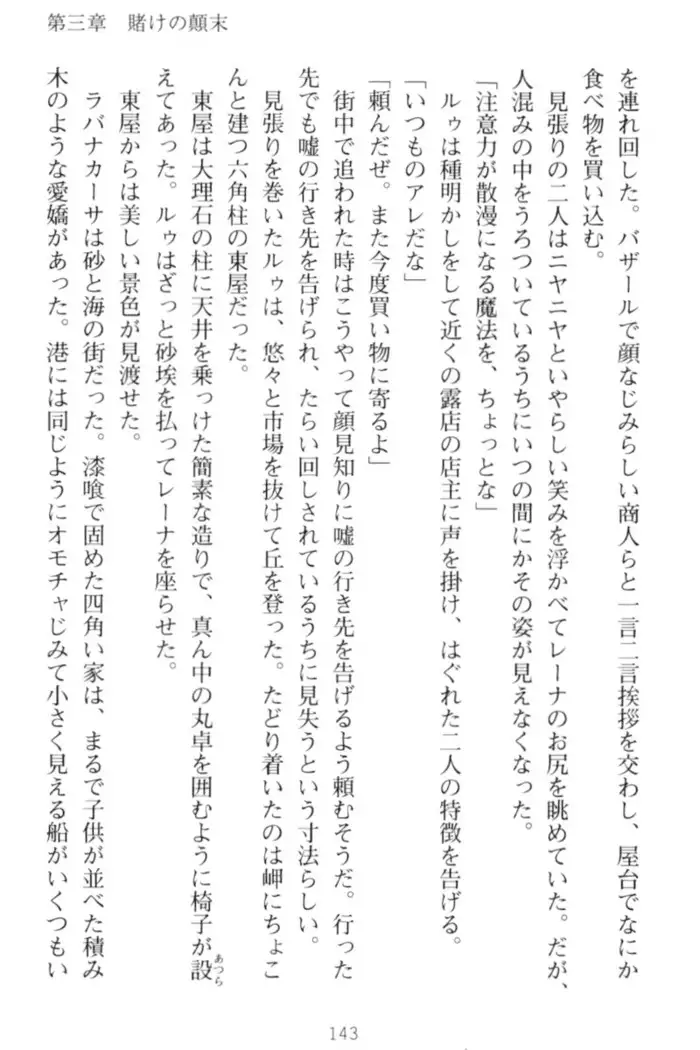 第三章　賭けの顛末
を連れ回した。バザールで顔なじみらしい商人らと一言二言挨拶を交わし、屋台でなにか
食べ物を買い込む。
　見張りの二人はニヤニヤといやらしい笑みを浮かべてレーナのお尻を眺めていた。だが、
人混みの中をうろついているうちにいつの間にかその姿が見えなくなった。
「注意力が散漫になる魔法を、ちょっとな」
　ルゥは種明かしをして近くの露店の店主に声を掛け、はぐれた二人の特徴を告げる。
「いつものアレだな」
「頼んだぜ。また今度買い物に寄るよ」
　街中で追われた時はこうやって顔見知りに嘘の行き先を告げるよう頼むそうだ。行った
先でも嘘の行き先を告げられ、たらい回しされているうちに見失うという寸法らしい。
　見張りを巻いたルゥは、悠々と市場を抜けて丘を登った。たどり着いたのは岬にちょこ
んと建つ六角柱の東屋だった。
　東屋は大理石の柱に天井を乗っけた簡素な造りで、真ん中の丸卓を囲むように椅子が設
あつら
えてあった。ルゥはざっと砂埃を払ってレーナを座らせた。
　東屋からは美しい景色が見渡せた。
　ラバナカーサは砂と海の街だった。漆喰で固めた四角い家は、まるで子供が並べた積み
木のような愛嬌があった。港には同じようにオモチャじみて小さく見える船がいくつもい
143